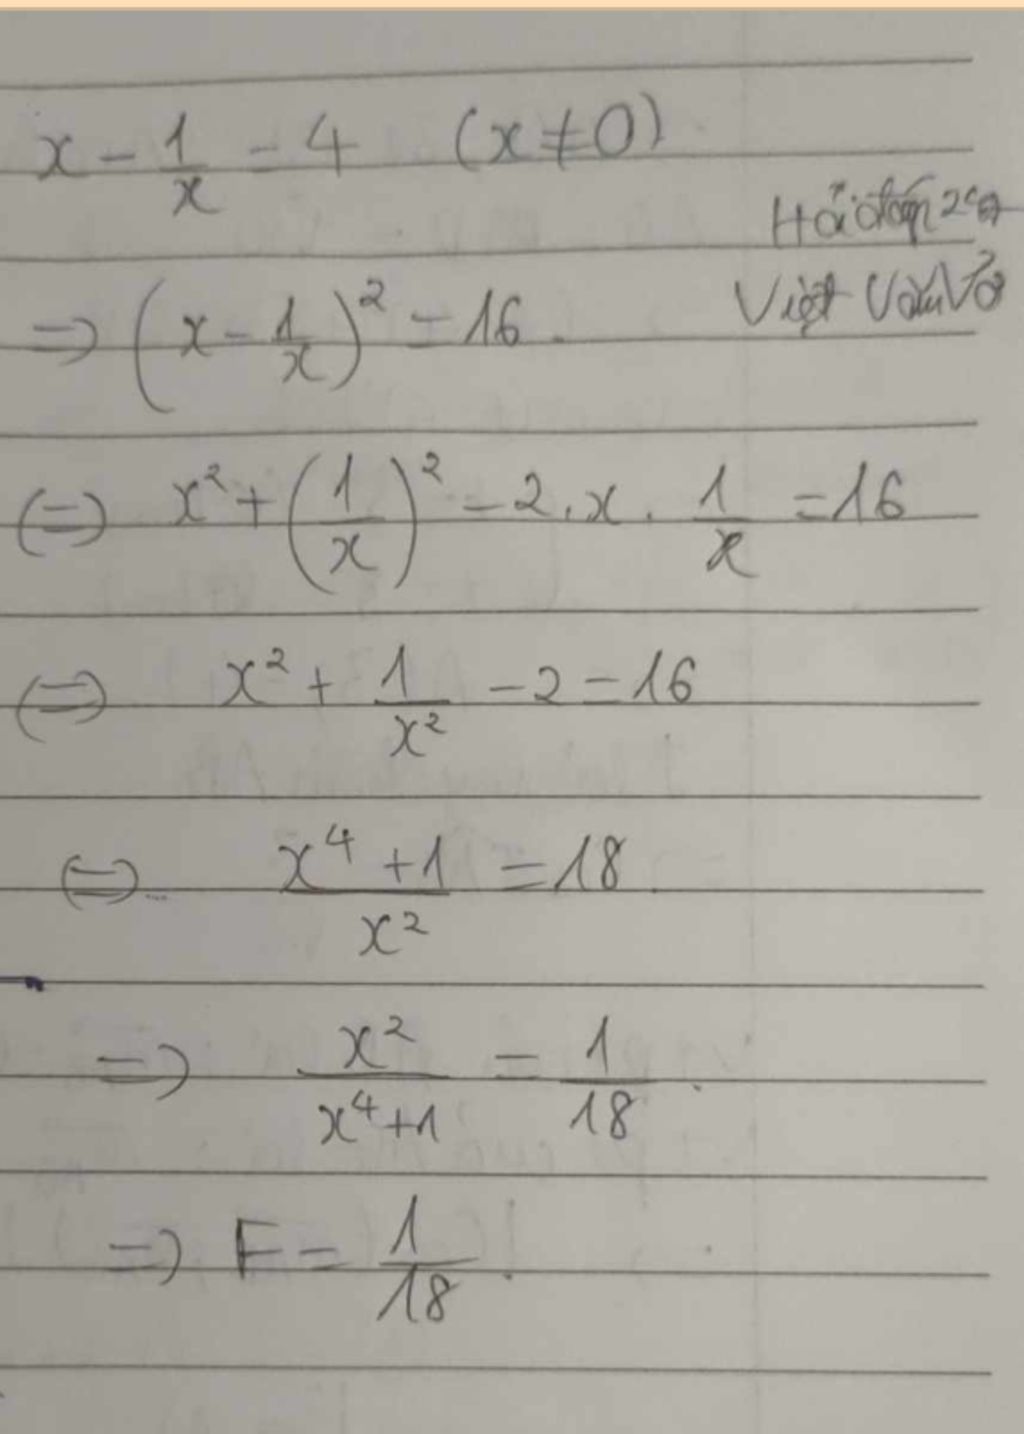 x - 1/x = 4 (x ≠ 0)
Hỏi đáp 247
Việt Văn Võ
=> (x - 1/x)² = 16.
(=) x² + (1/x)² - 2.x. 1/x = 16
(=) x² + 1/x² - 2 = 16
(=) (x⁴ + 1)/x² = 18
=> x²/(x⁴+1) = 1/18.
=> F = 1/18.